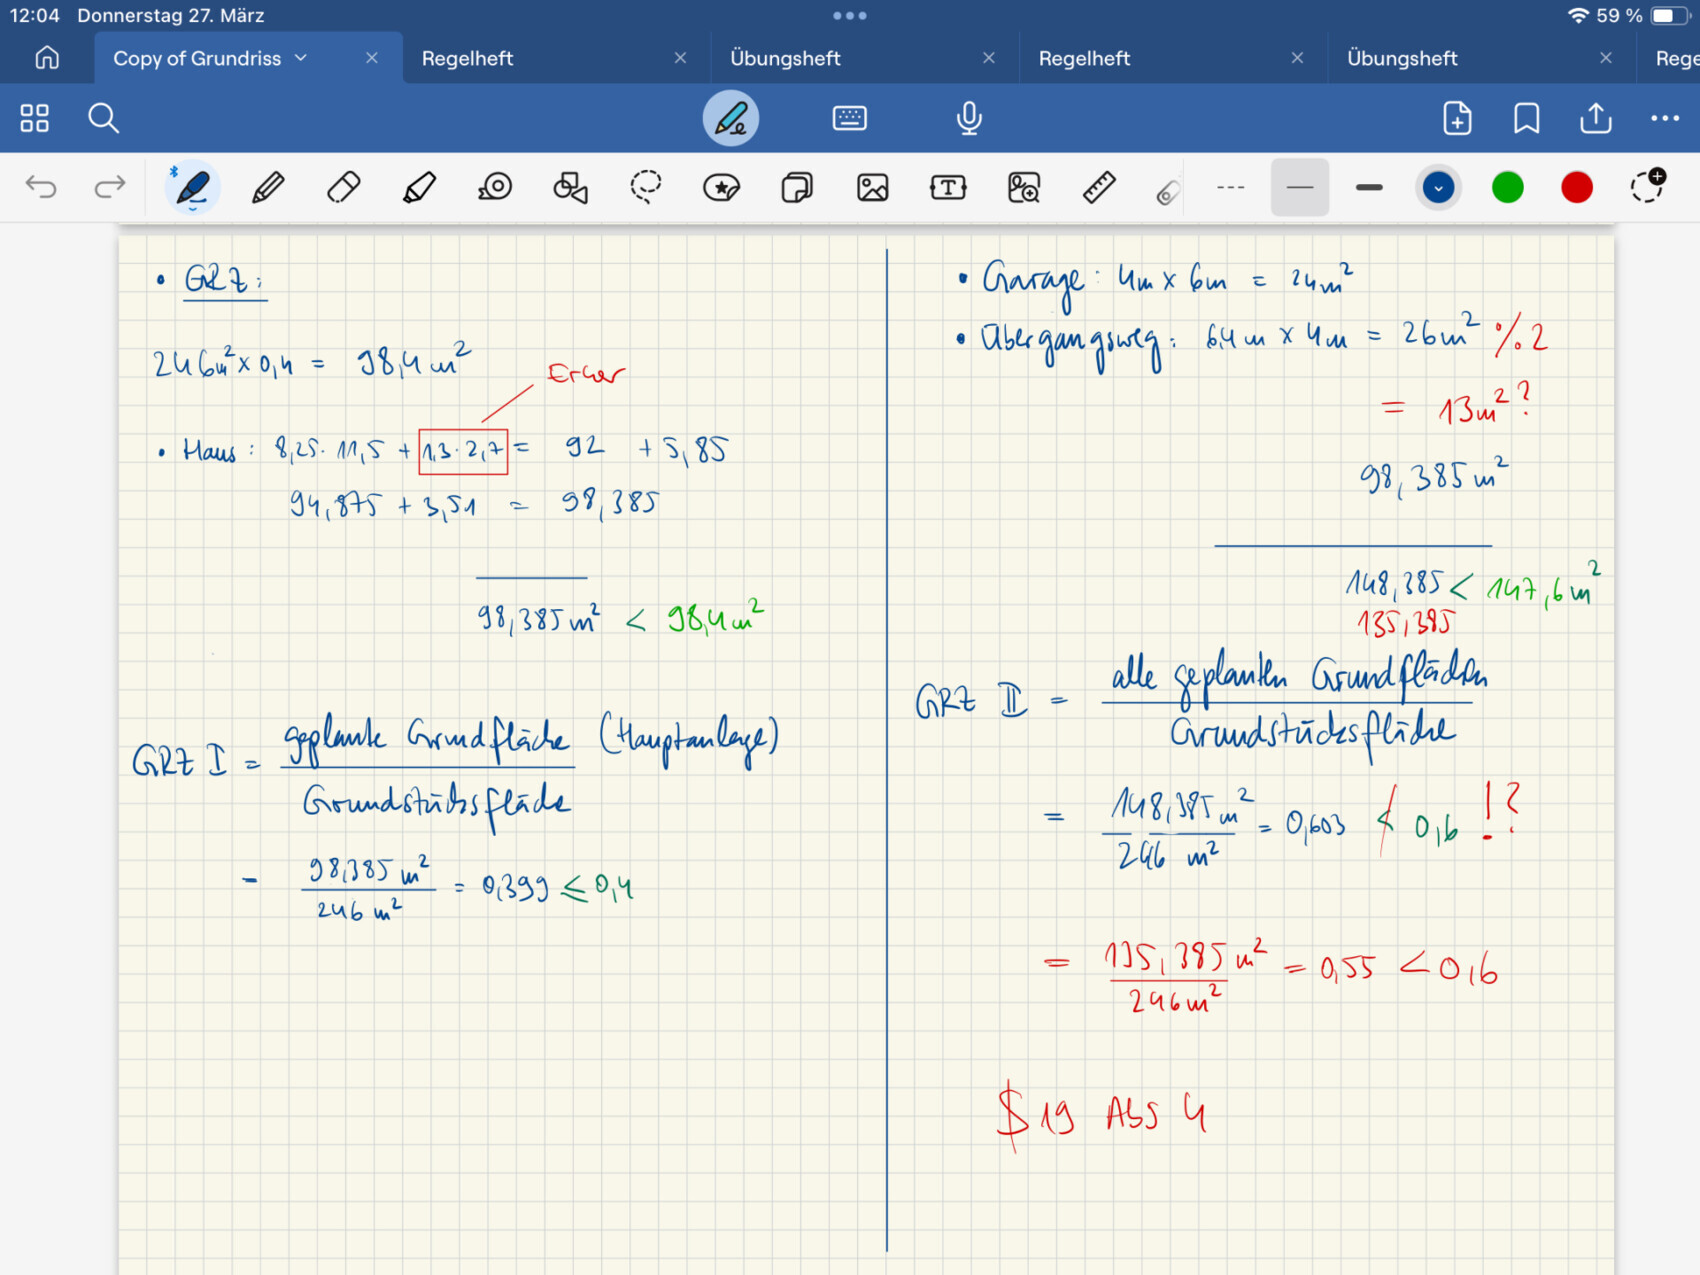 12:04 Donnerstag 27. März
59 %
Copy of Grundriss
Regelheft
Übungsheft
Regelheft
Übungsheft
Rege
• GRZ:
246m² x 0,4 = 98,4 m²
Erker
• Haus: 8,25 · 11,5 + 1,3 · 2,7 = 92 + 5,85
94,875 + 3,51 = 98,385
98,385 m² < 98,4 m²
GRZ I = geplante Grundfläche (Hauptanlage)
Grundstücksfläche
= 98,385 m² / 246 m² = 0,399 ≤ 0,4
• Garage: 4m x 6m = 24m²
• Übergangsweg: 6,4 m x 4m = 26m² % 2
= 13m²?
98,385 m²
148,385 < 147,6 m²
135,385
GRZ II = alle geplanten Grundflächen
Grundstücksfläche
= 148,385 m² / 246 m² = 0,603 ≮ 0,6 !?
= 135,385 m² / 246 m² = 0,55 < 0,6
§ 19 Abs 4